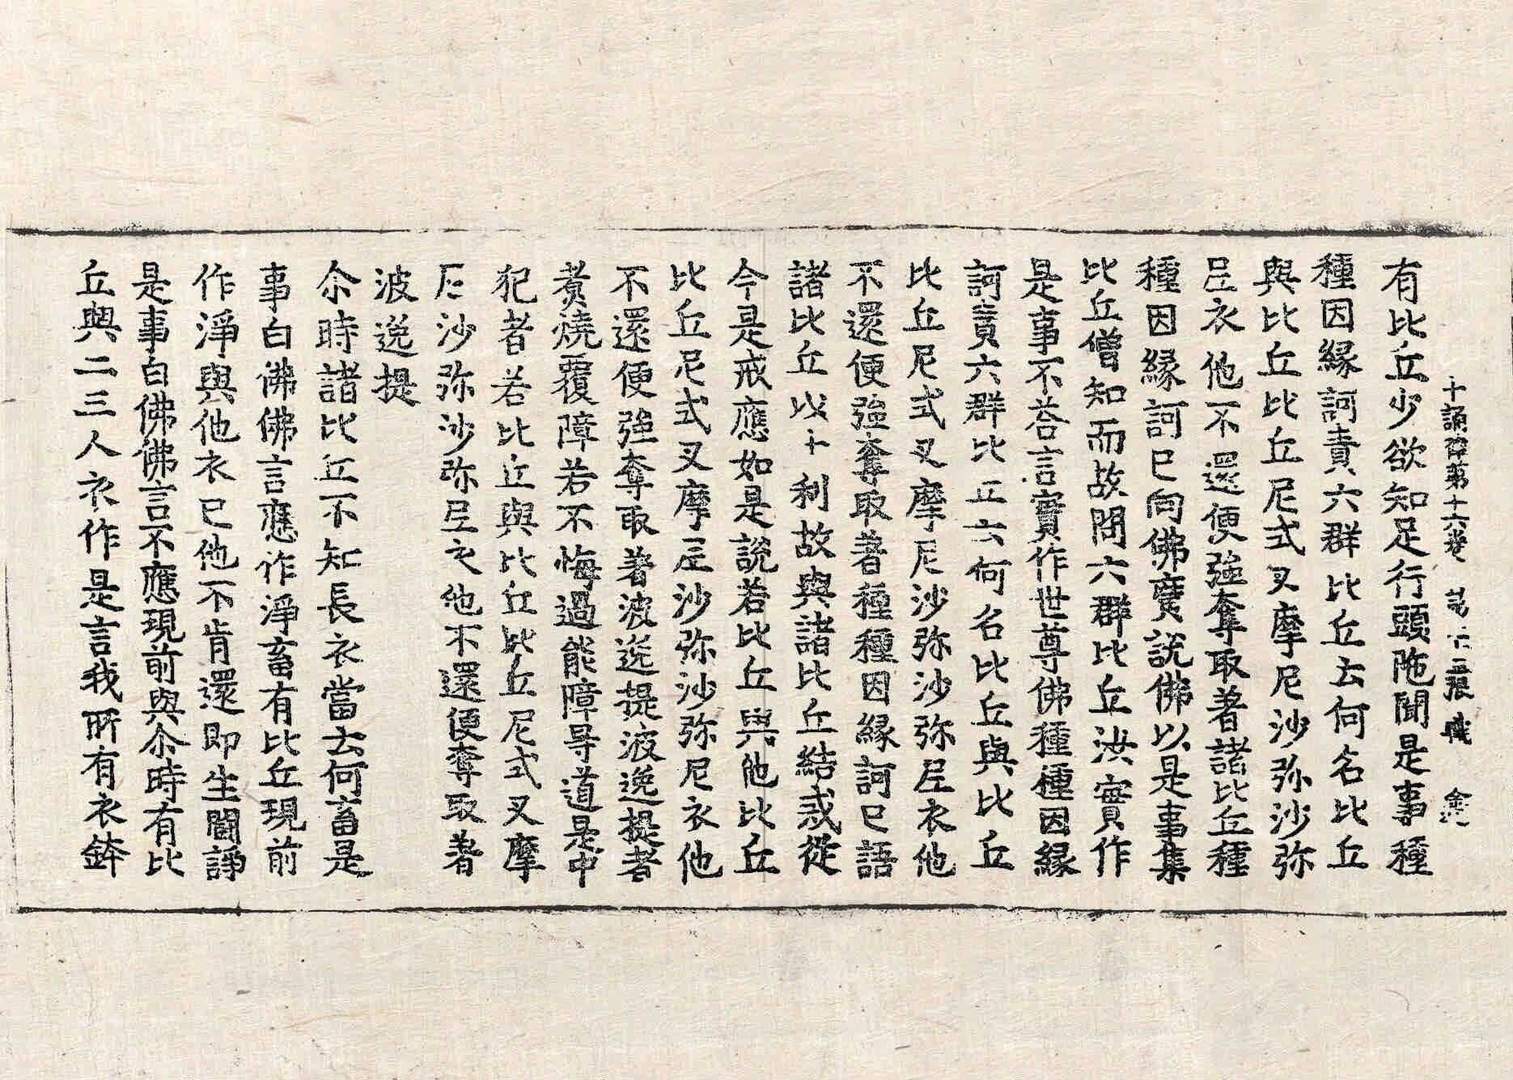 十誦律第十六卷 第十二張 職
有比丘少欲知足行頭陁聞是事種
種因縁訶責六群比丘云何名比丘
與比丘比丘尼式叉摩尼沙弥沙弥
尼衣他不還便強奪取著諸比丘種
種因縁訶已向佛廣說佛以是事集
比丘僧知而故問六群比丘汝實作
是事不荅言實作世尊佛種種因縁
訶責六群比丘云何名比丘與比丘
比丘尼式叉摩尼沙弥沙弥尼衣他
不還便強奪取著種種因縁訶已語
諸比丘以十利故與諸比丘結戒從
今是戒應如是說若比丘與他比丘
比丘尼式叉摩尼沙弥沙弥尼衣他
不還便強奪取著波逸提波逸提者
煑燒覆障若不悔過能障㝵道是中
犯者若比丘與比丘比丘尼式叉摩
尼沙弥沙弥尼衣他不還便奪取著
波逸提
尒時諸比丘不知長衣當云何畜是
事白佛佛言應作淨畜有比丘現前
作淨與他衣已他不肯還即生鬪諍
是事白佛佛言不應現前與尒時有比
丘與二三人衣作是言我所有衣鉢